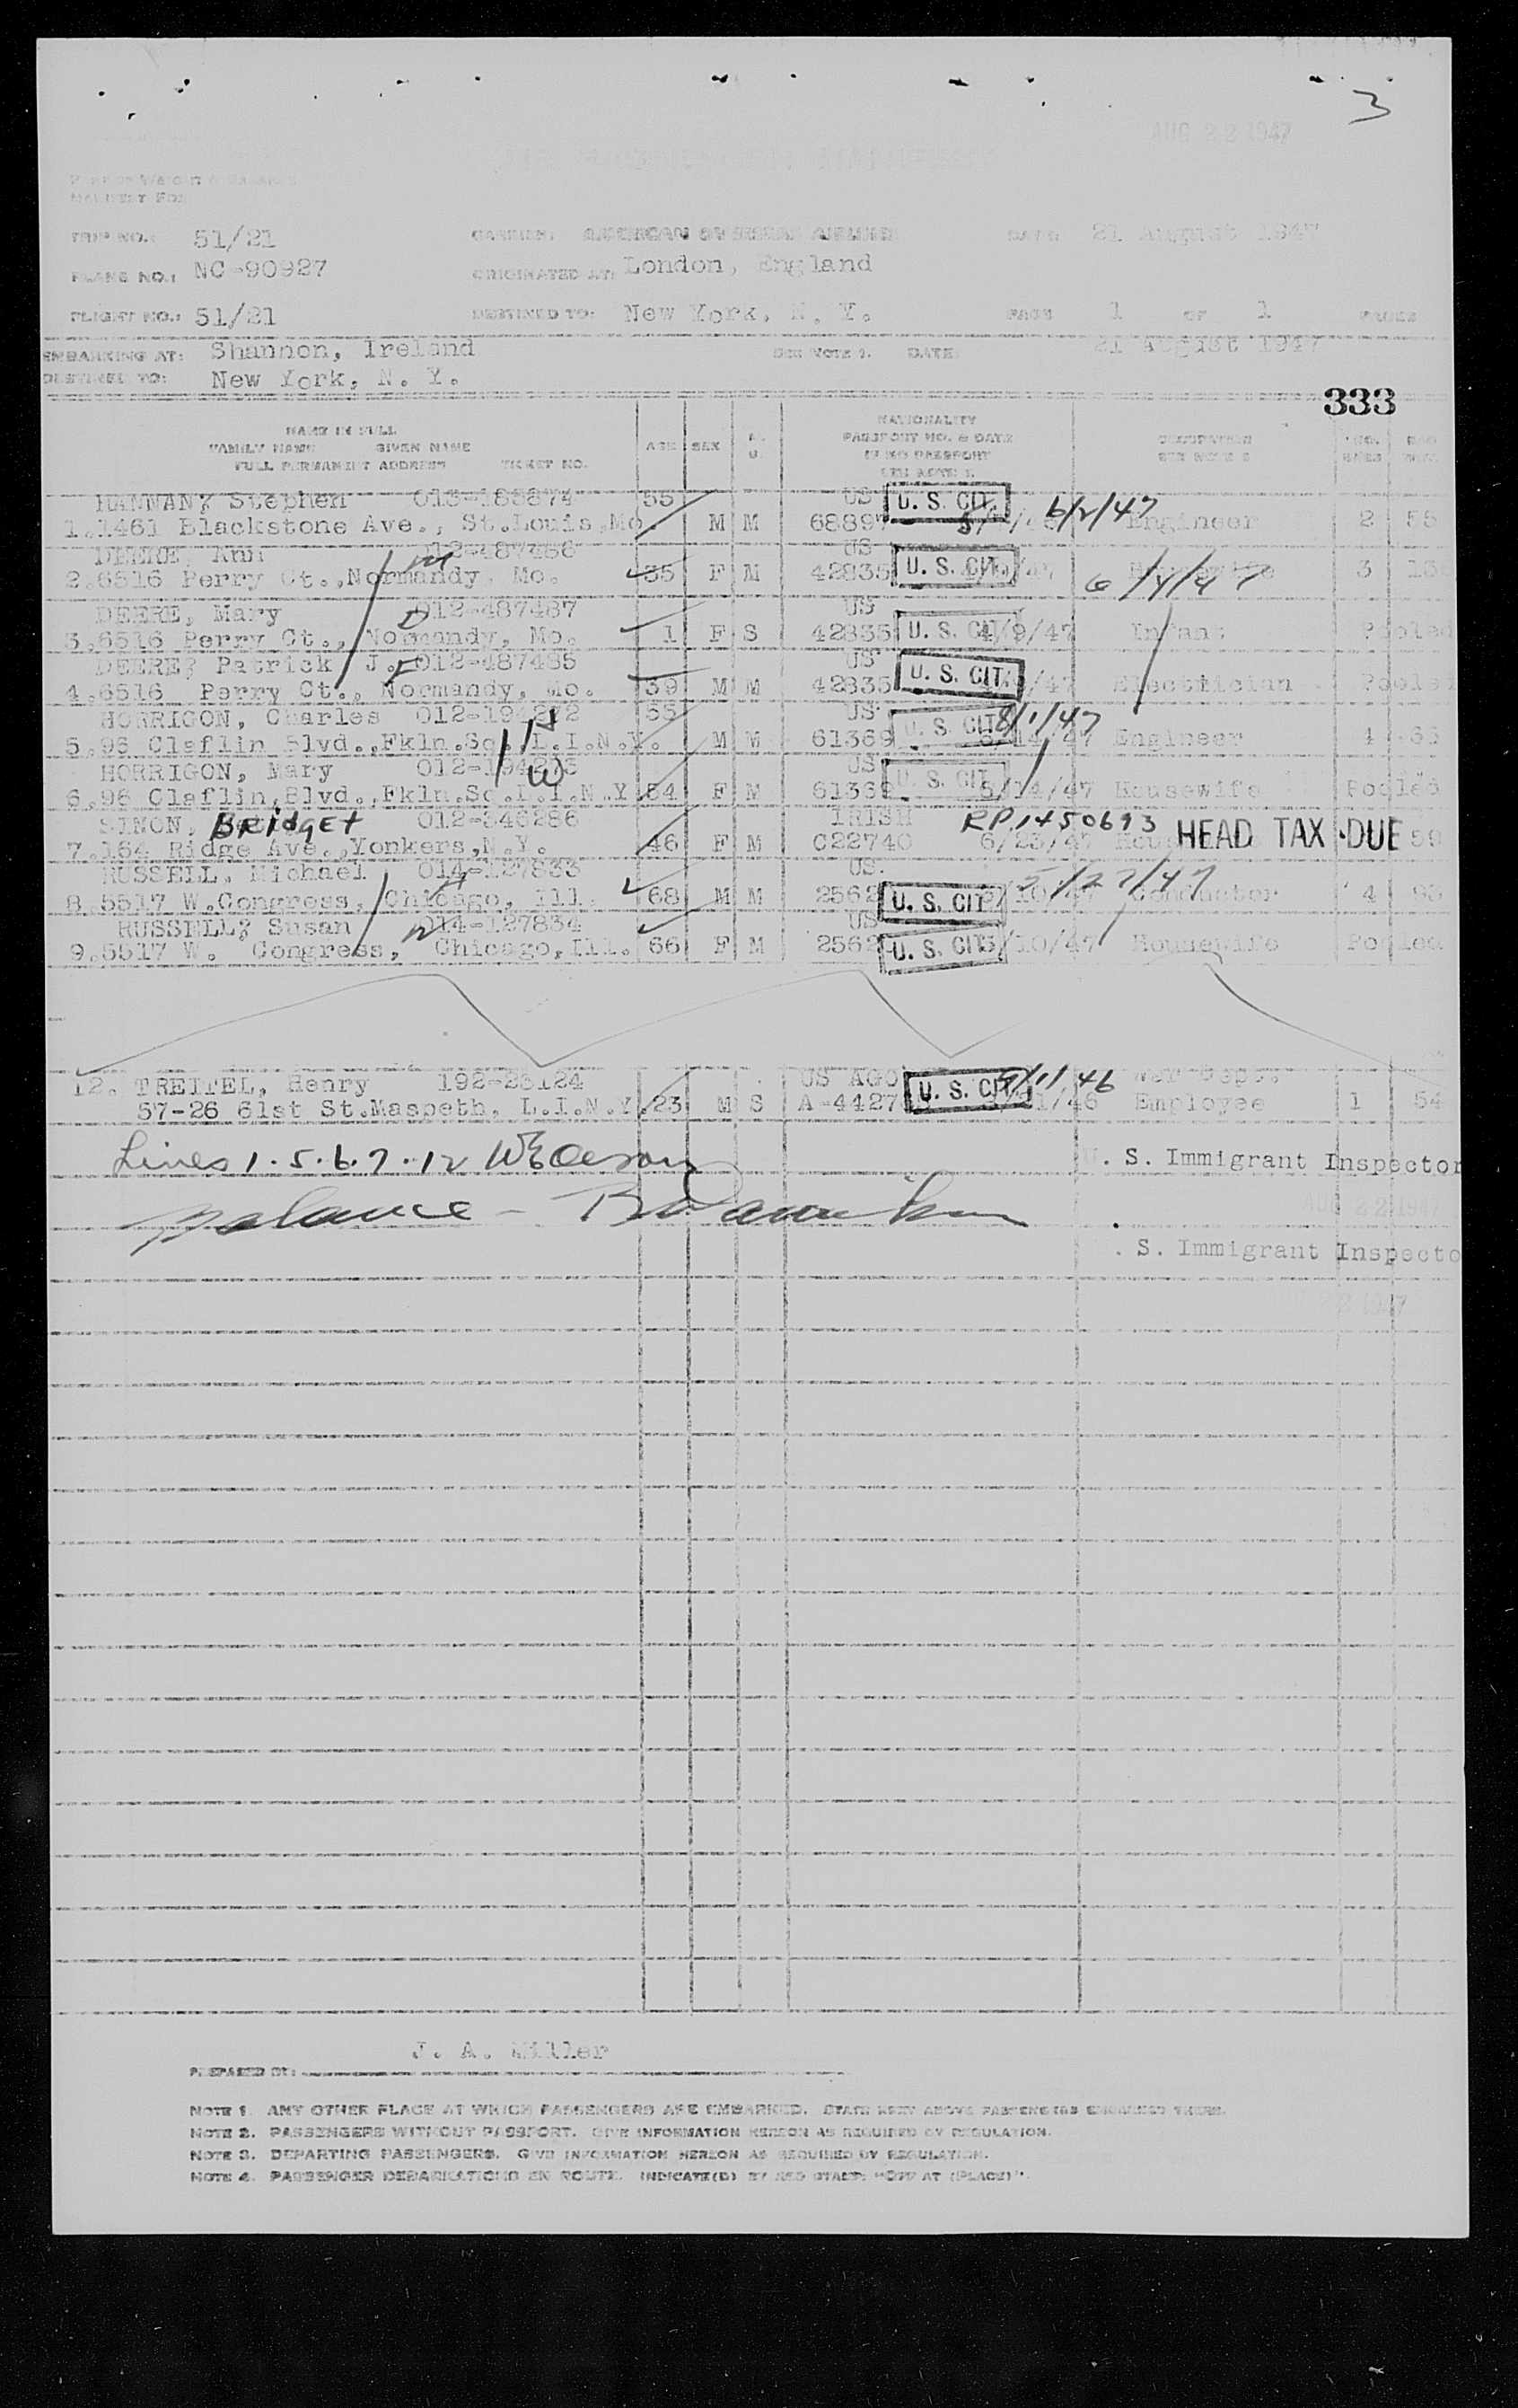 3
AUG 22 1947
MANIFEST FOR
TRIP NO.: 51/21 CARRIER: AMERICAN OVERSEAS AIRLINES DATE 21 August 1947
PLANE NO.: NC-90927 ORIGINATED AT: London, England
FLIGHT NO.: 51/21 DESTINED TO: New York, N. Y. PAGE 1 OF 1 PAGES
EMBARKING AT: Shannon, Ireland SEE NOTE 1. DATE: 21 August 1947
DESTINED TO: New York, N. Y.
333
NAME IN FULL NATIONALITY
FAMILY NAME GIVEN NAME AGE SEX PASSPORT NO. & DATE OCCUPATION
FULL PERMANENT ADDRESS TICKET NO. IF NO PASSPORT SEE NOTE 2
SEE NOTE 2.
HANNAN, Stephen 013-183874 55 US U. S. CIT. 6/2/47
1.1461 Blackstone Ave., St.Louis,Mo. M M 68897 Engineer 2 55
DEERE, Ann 012-487486 US U. S. CIT. M
2.6516 Perry Ct.,Normandy, Mo. 35 F M 42835 /47 6/4/47 3
DEERE, Mary 012-487487 US D
3.6516 Perry Ct., Normandy, Mo. 1 F S 42835 U. S. CIT. 4/9/47 Infant Pooled
DEERE, Patrick J. 012-487485 US U. S. CIT. F
4.6516 Perry Ct., Normandy, Mo. 39 M M 42835 /47 Electrician Pooled
HORRIGON, Charles 55 US U. S. CIT. 8/1/47 H
5.96 Claflin Blvd.,Fkln.Sq.,L.I.N.Y. M M 61369 14/47 Engineer 4
HORRIGON, Mary 012-194273 US U. S. CIT. W
6.96 Claflin,Blvd.,Fkln.Sq.L.I.N.Y. 54 F M 61369 5/14/47 Housewife Pooled
SIMON, BRidgEt 012-346286 IRISH RP1450693 HEAD TAX DUE
7.164 Ridge Ave.,Yonkers,N.Y. 46 F M C22740 6/23/47 59
RUSSELL, Michael 014-127833 US. 5/27/47 H
8.5517 W.Congress, Chicago, Ill. 68 M M 2562 U. S. CIT. /10/47 Conductor 4
RUSSELL, Susan 014-127834 US W
9.5517 W. Congress, Chicago,Ill. 66 F M 2562 U. S. CIT. 3/10/47 Housewife Pooled
12. TREITEL, Henry 192-23124 US AGO U. S. CIT. 9/11/46 War Dept.
57-26 61st St.Maspeth, L.I.N.Y. 23 M S A-4427 /21/46 Employee 1 54
Lines 1. 5. 6. 7. 12
U. S. Immigrant Inspector
Balance -
AUG 22 1947
. S. Immigrant Inspecto
22 1947
J. A. Miller
PREPARED BY:
NOTE 1. ANY OTHER PLACE AT WHICH PASSENGERS ARE EMBARKED. STATE NEXT ABOVE PASSENGERS EMBARKED THERE.
NOTE 2. PASSENGERS WITHOUT PASSPORT. GIVE INFORMATION HEREON AS REQUIRED BY REGULATION.
NOTE 3. DEPARTING PASSENGERS. GIVE INFORMATION HEREON AS REQUIRED BY REGULATION.
NOTE 4. PASSENGER DEBARKATIONS EN ROUTE. INDICATE(D) BY RED STAMP: "OFF AT (PLACE)".